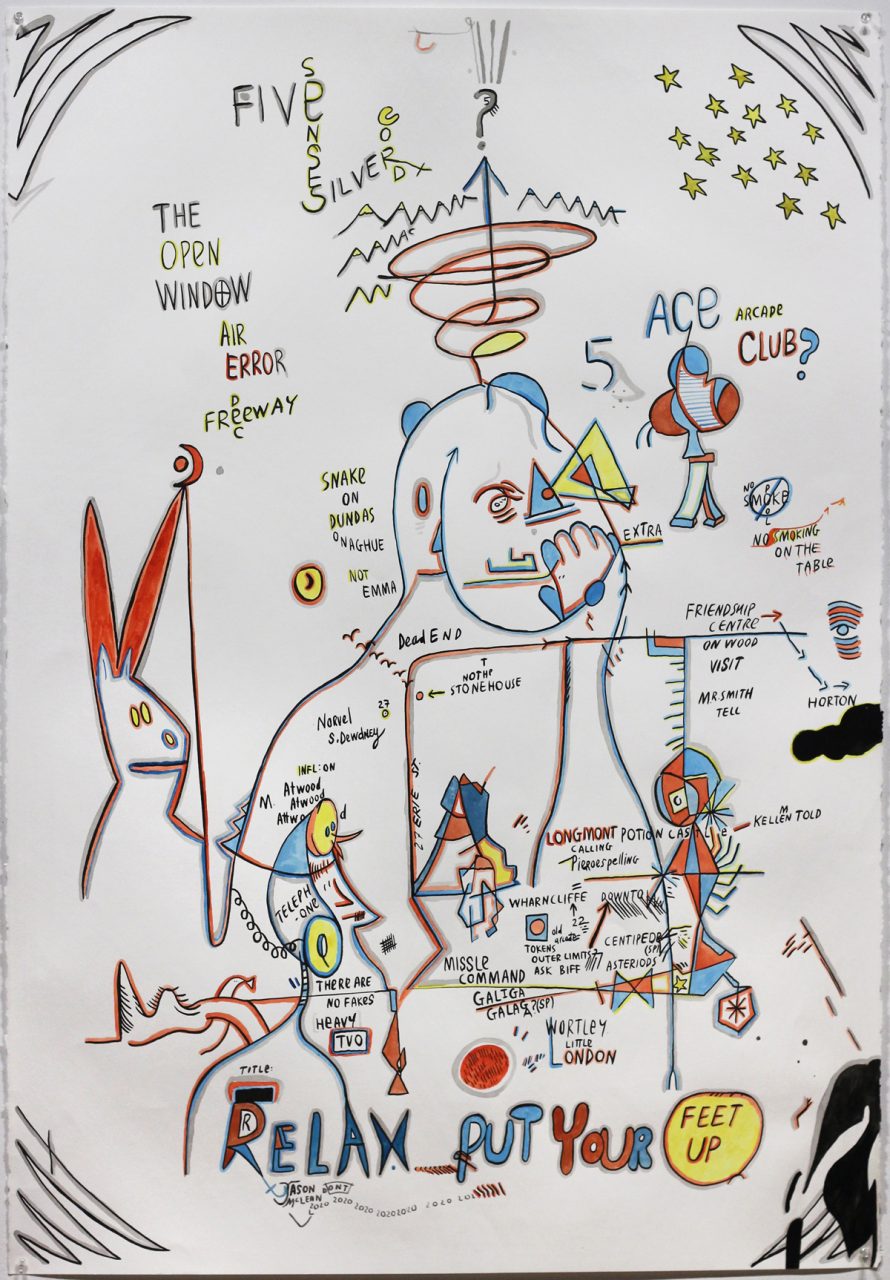 FIVE
SENSES
SILVER
CORD X
?
5
THE
OPEN
WINDOW
AIR
ERROR
FREEWAY
DEC
5
ACE
ARCADE
CLUB?
SNAKE
ON
DUNDAS
ONAGHUE
NOT
EMMA
EXTRA
NO
SMOKE
NO SMOKING
ON THE
TABLE
FRIENDSHIP
CENTRE
ON WOOD
VISIT
MR. SMITH
TELL
HORTON
Dead END
T
NOTHE
STONEHOUSE
27
Norvel
S. Dewdney
INFL:ON
M. Atwood
Atwood
Attwood
27 ERIE ST.
LONGMONT POTION CASTLE
CALLING
Pieroespelling
M
KELLEN TOLD
WHARNCLIFFE
DOWNTO
22
old
arcade
TOKENS
OUTER LIMITS?
ASK BIFF
CENTIPEDE
(SP)
ASTERIODS
TELEPH
-ONE
MISSLE
COMMAND
GALIGA
GALAGA?(SP)
THERE ARE
NO FAKES
HEAVY
TVO
WORTLEY
LITTLE
LONDON
TITLE:
RELAX PUT YOUR FEET UP
JASON DONT
MCLEAN
2020 2020 2020 202020 2020 202